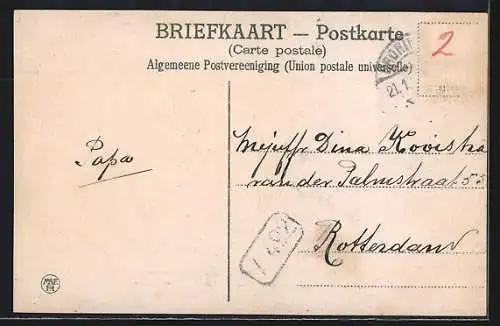 BRIEFKAART — Postkarte
(Carte postale)
Algemeene Postvereeniging (Union postale universelle)
2
21.1
Papa
Mejuffr Dina Kooistra
van der Palmstraat 55
Rotterdam